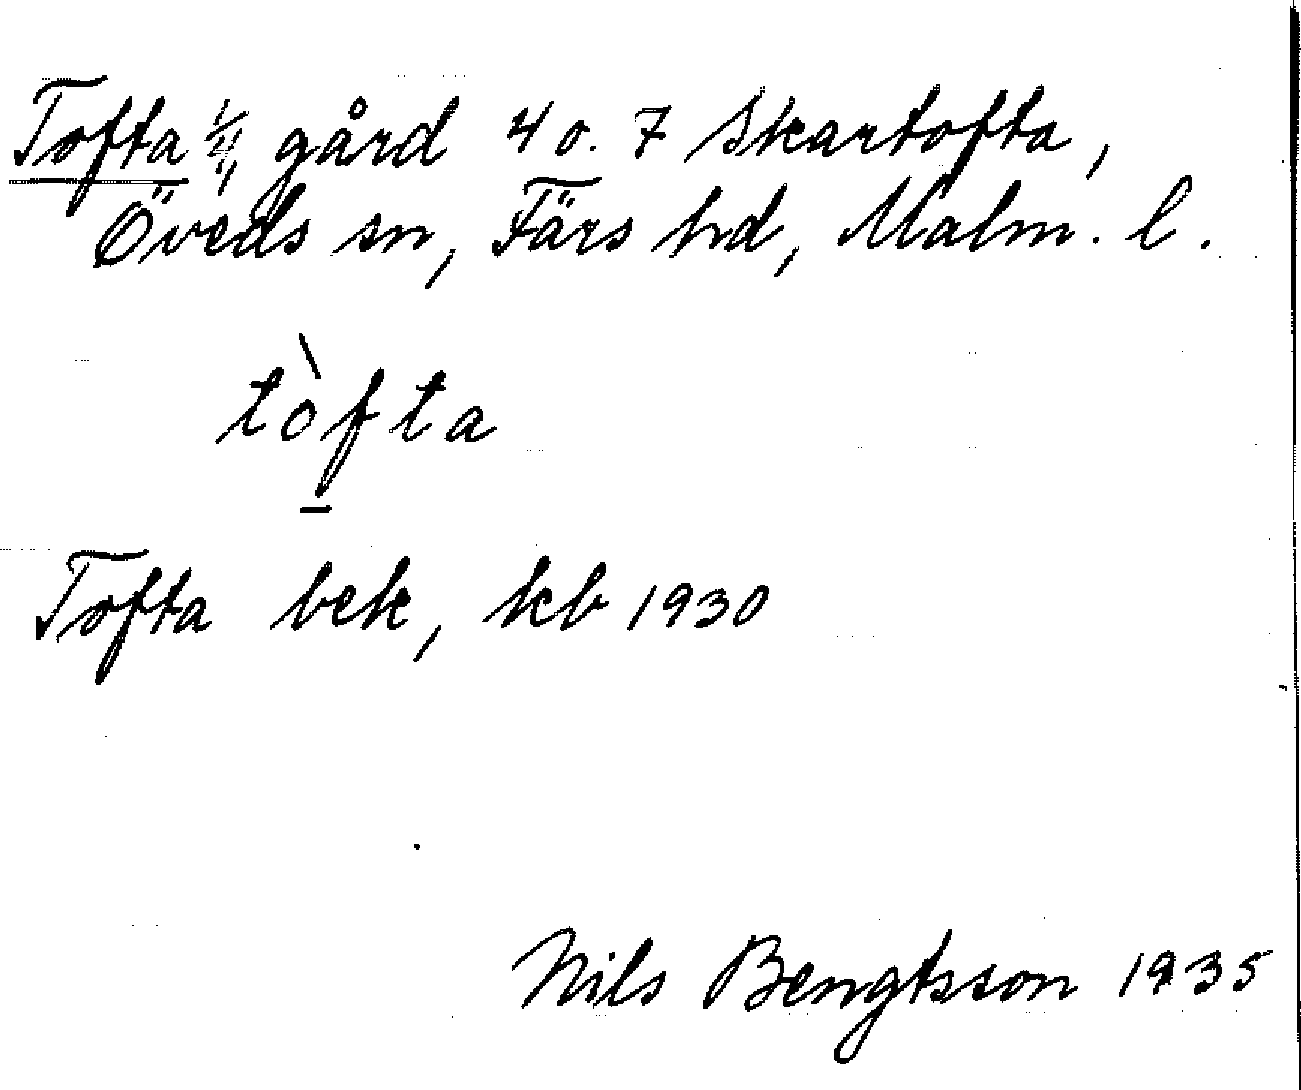 Tofta ¼, gård 4 o. 7 Skartofta,
Öveds sn, Färs hd, Malm. l.
tòfta
Tofta bek, kb 1930
Nils Bengtsson 1935